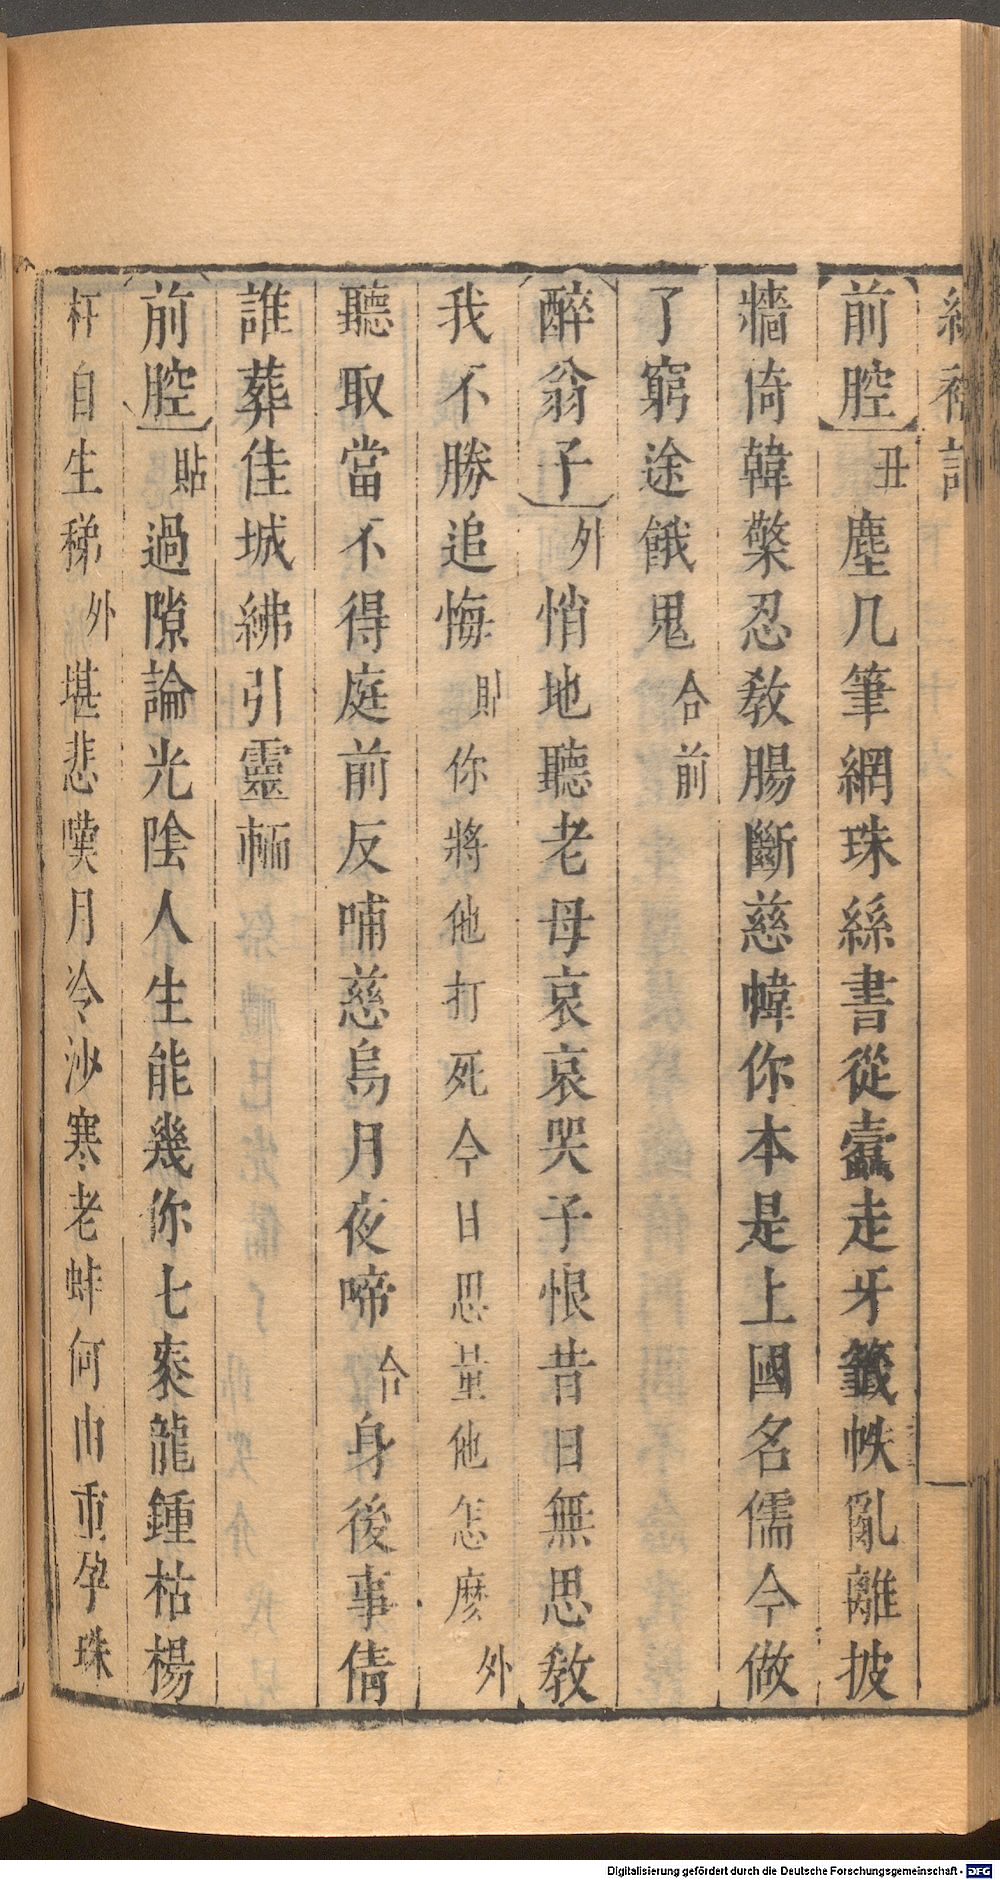 繡襦記
前腔丑塵几筆網珠絲書從蠹走牙籤帙亂離披
牆倚韓檠忍教腸斷慈幃你本是上國名儒今做
了窮途餓鬼合前
醉翁子外悄地聽老母哀哀哭子恨昔日無思教
我不勝追悔貼你將他打死今日思量他怎麽外
聽取當不得庭前反哺慈烏月夜啼合身後事倩
誰葬佳城紼引靈輀
前腔貼過隙論光陰人生能幾你七桼龍鍾枯楊
杆自生稊外堪悲嘆月冷沙寒老蚌何由重孕珠
Digitalisierung gefördert durch die Deutsche Forschungsgemeinschaft - DFG